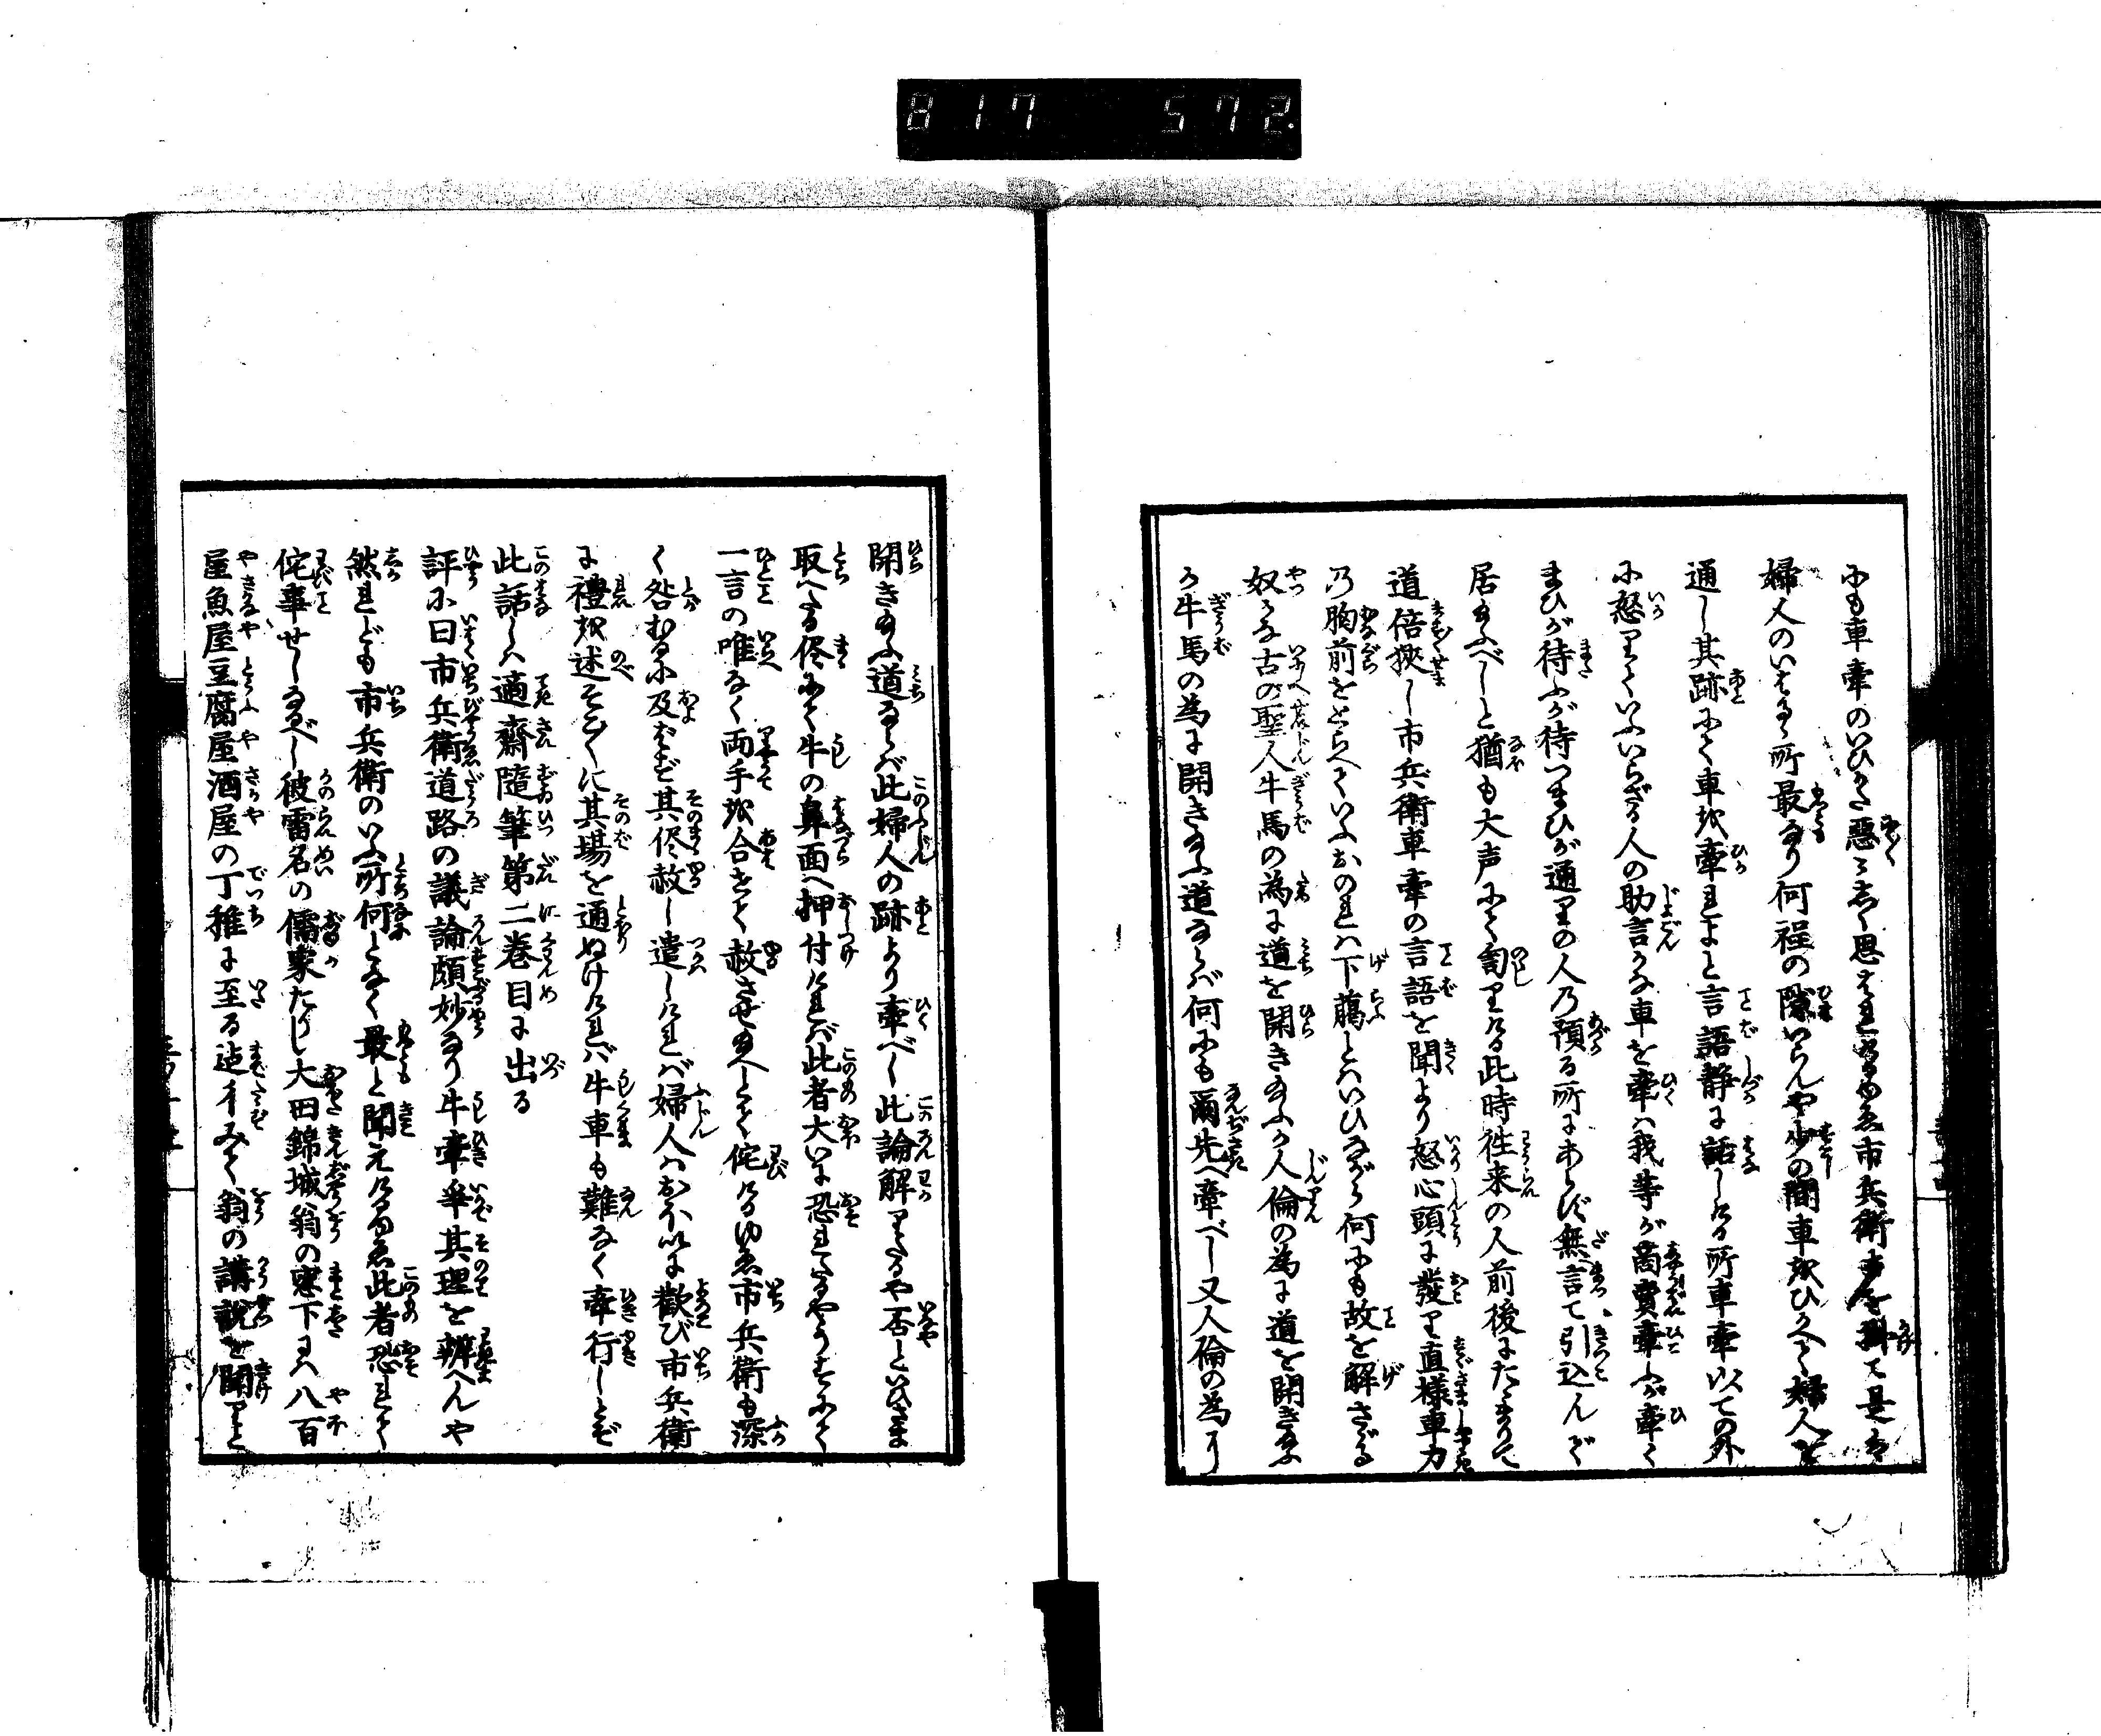 817 572
にも車牽のいひかた悪々しく思はれけるゆゑ市兵衛声を掛て是は
婦人のいはるゝ所最なり何程の隙いらんや少の間車をひかへて婦人を
通し其跡にて車を牽れよと言語静に話しける所車牽以ての外
に怒りていふいらざる人の助言かな車を牽は我等が商賣牽ふが牽く
まひが待ふが待つまひが通りの人の預る所にあらず無言て引込んで
居給ふべしと猶も大声にて訇りける此時往来の人前後にたまりて
道倍狹し市兵衛車牽の言語を聞より怒心頭に發り直様車力
の胸前をとらへていふおのれは下﨟とはいひながら何にも故を解さゞる
奴かな古の聖人牛馬の為に道を開き給ふか人倫の為に道を開き給ふ
か牛馬の為に開き給ふ道ならば何にも爾先へ牽べし又人倫の為に
開き給ふ道ならば此婦人の跡より牽べし此論解りたるや否といひさま
取へたる侭にて牛の鼻面へ押付ければ此者大いに恐れたるやうすにて
一言の唯なく両手を合せて赦させ給へとて侘けるゆゑ市兵衛も深
く咎むるに及ばず其侭赦し遣しければ婦人はおほいに歡び市兵衛
に禮を述そこ〳〵に其場を通ぬければ牛車も難なく牽行しとぞ
此話しハ適齋隨筆第二巻目に出る
評に曰市兵衛道路の議論頗妙なり牛牽争其理を辨へんや
然れども市兵衛のいふ所何となく最と聞えけるゆゑ此者恐れて
侘事せしなるべし彼雷名の儒家たりし大田錦城翁の窓下にハ八百
屋魚屋豆腐屋酒屋の丁稚に至る迠イみて翁の講説を聞りと